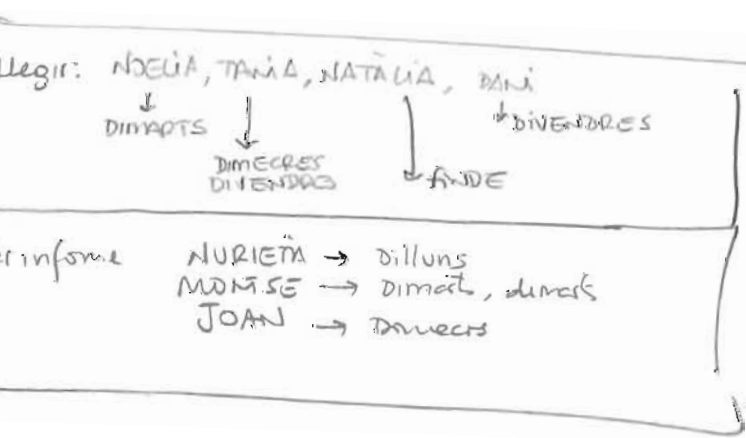 Llegir: NOELIA, TANIA, NATÀLIA, DANI
DIMARTS
DIVENDRES
DIMECRES
DIVENDRES
FINDE
informe NURIETA → Dilluns
MONTSE → Dimarts, dimarts
JOAN → Dimecres